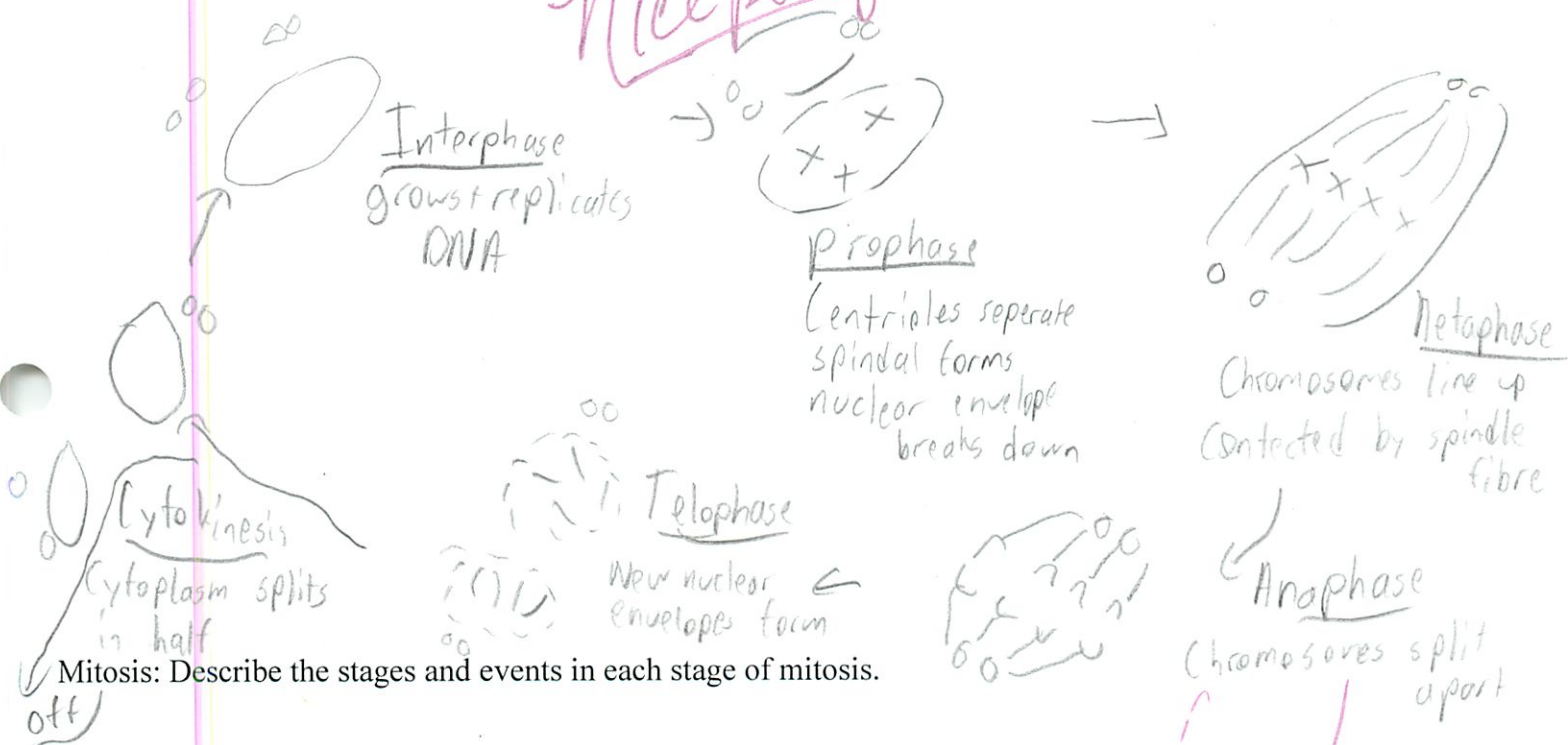 Nice
Interphase
grows + replicates
DNA
Prophase
Centrioles seperate
spindal forms
nuclear envelope
breaks down
Metaphase
Chromosomes line up
Contected by spindle
fibre
Anaphase
Chromosoves split
apart
Telophase
New nuclear
envelopes form
Cytokinesis
Cytoplasm splits
in half
Mitosis: Describe the stages and events in each stage of mitosis.
off